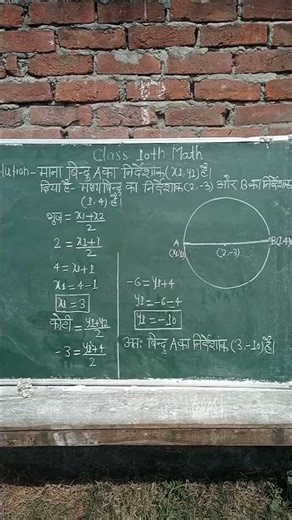 Class 10th Math
lution- माना बिन्दु A का निर्देशांक (x1, y1) है।
दिया है- मध्य बिन्दु का निर्देशांक (2,-3) और B का निर्देशांक
(1,4) है।
भुज = x1+x2/2
2 = x1+1/2
4 = x1+1
x1 = 4-1
x1 = 3
कोटि = y1+y2/2
-3 = y1+4/2
-6 = y1+4
y1 = -6-4
y1 = -10
अतः बिन्दु A का निर्देशांक (3,-10) है।
A
(x1,y1)
(2,-3)
B(1,4)